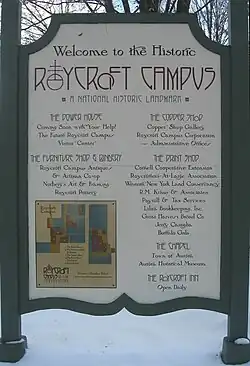 Welcome to the Historic
ROYCROFT CAMPUS
A NATIONAL HISTORIC LANDMARK
THE POWER HOUSE
Coming Soon with Your Help!
The Future Roycroft Campus
Visitor Center
THE FURNITURE SHOP & BINDERY
Roycroft Campus Antiques
& Artisans Co-op
Norberg's Art & Framing
Roycroft Pottery
THE COPPER SHOP
Copper Shop Gallery
Roycroft Campus Corporation
Administrative Office
THE PRINT SHOP
Cornell Cooperative Extension
Roycrofters-At-Large Association
Western New York Land Conservancy
R.M. Kriner & Associates
Payroll & Tax Services
Bookkeeping, Inc.
THE CHAPEL
Town of Aurora
Aurora Historical Museum
THE ROYCROFT INN
Open Daily
ROYCROFT